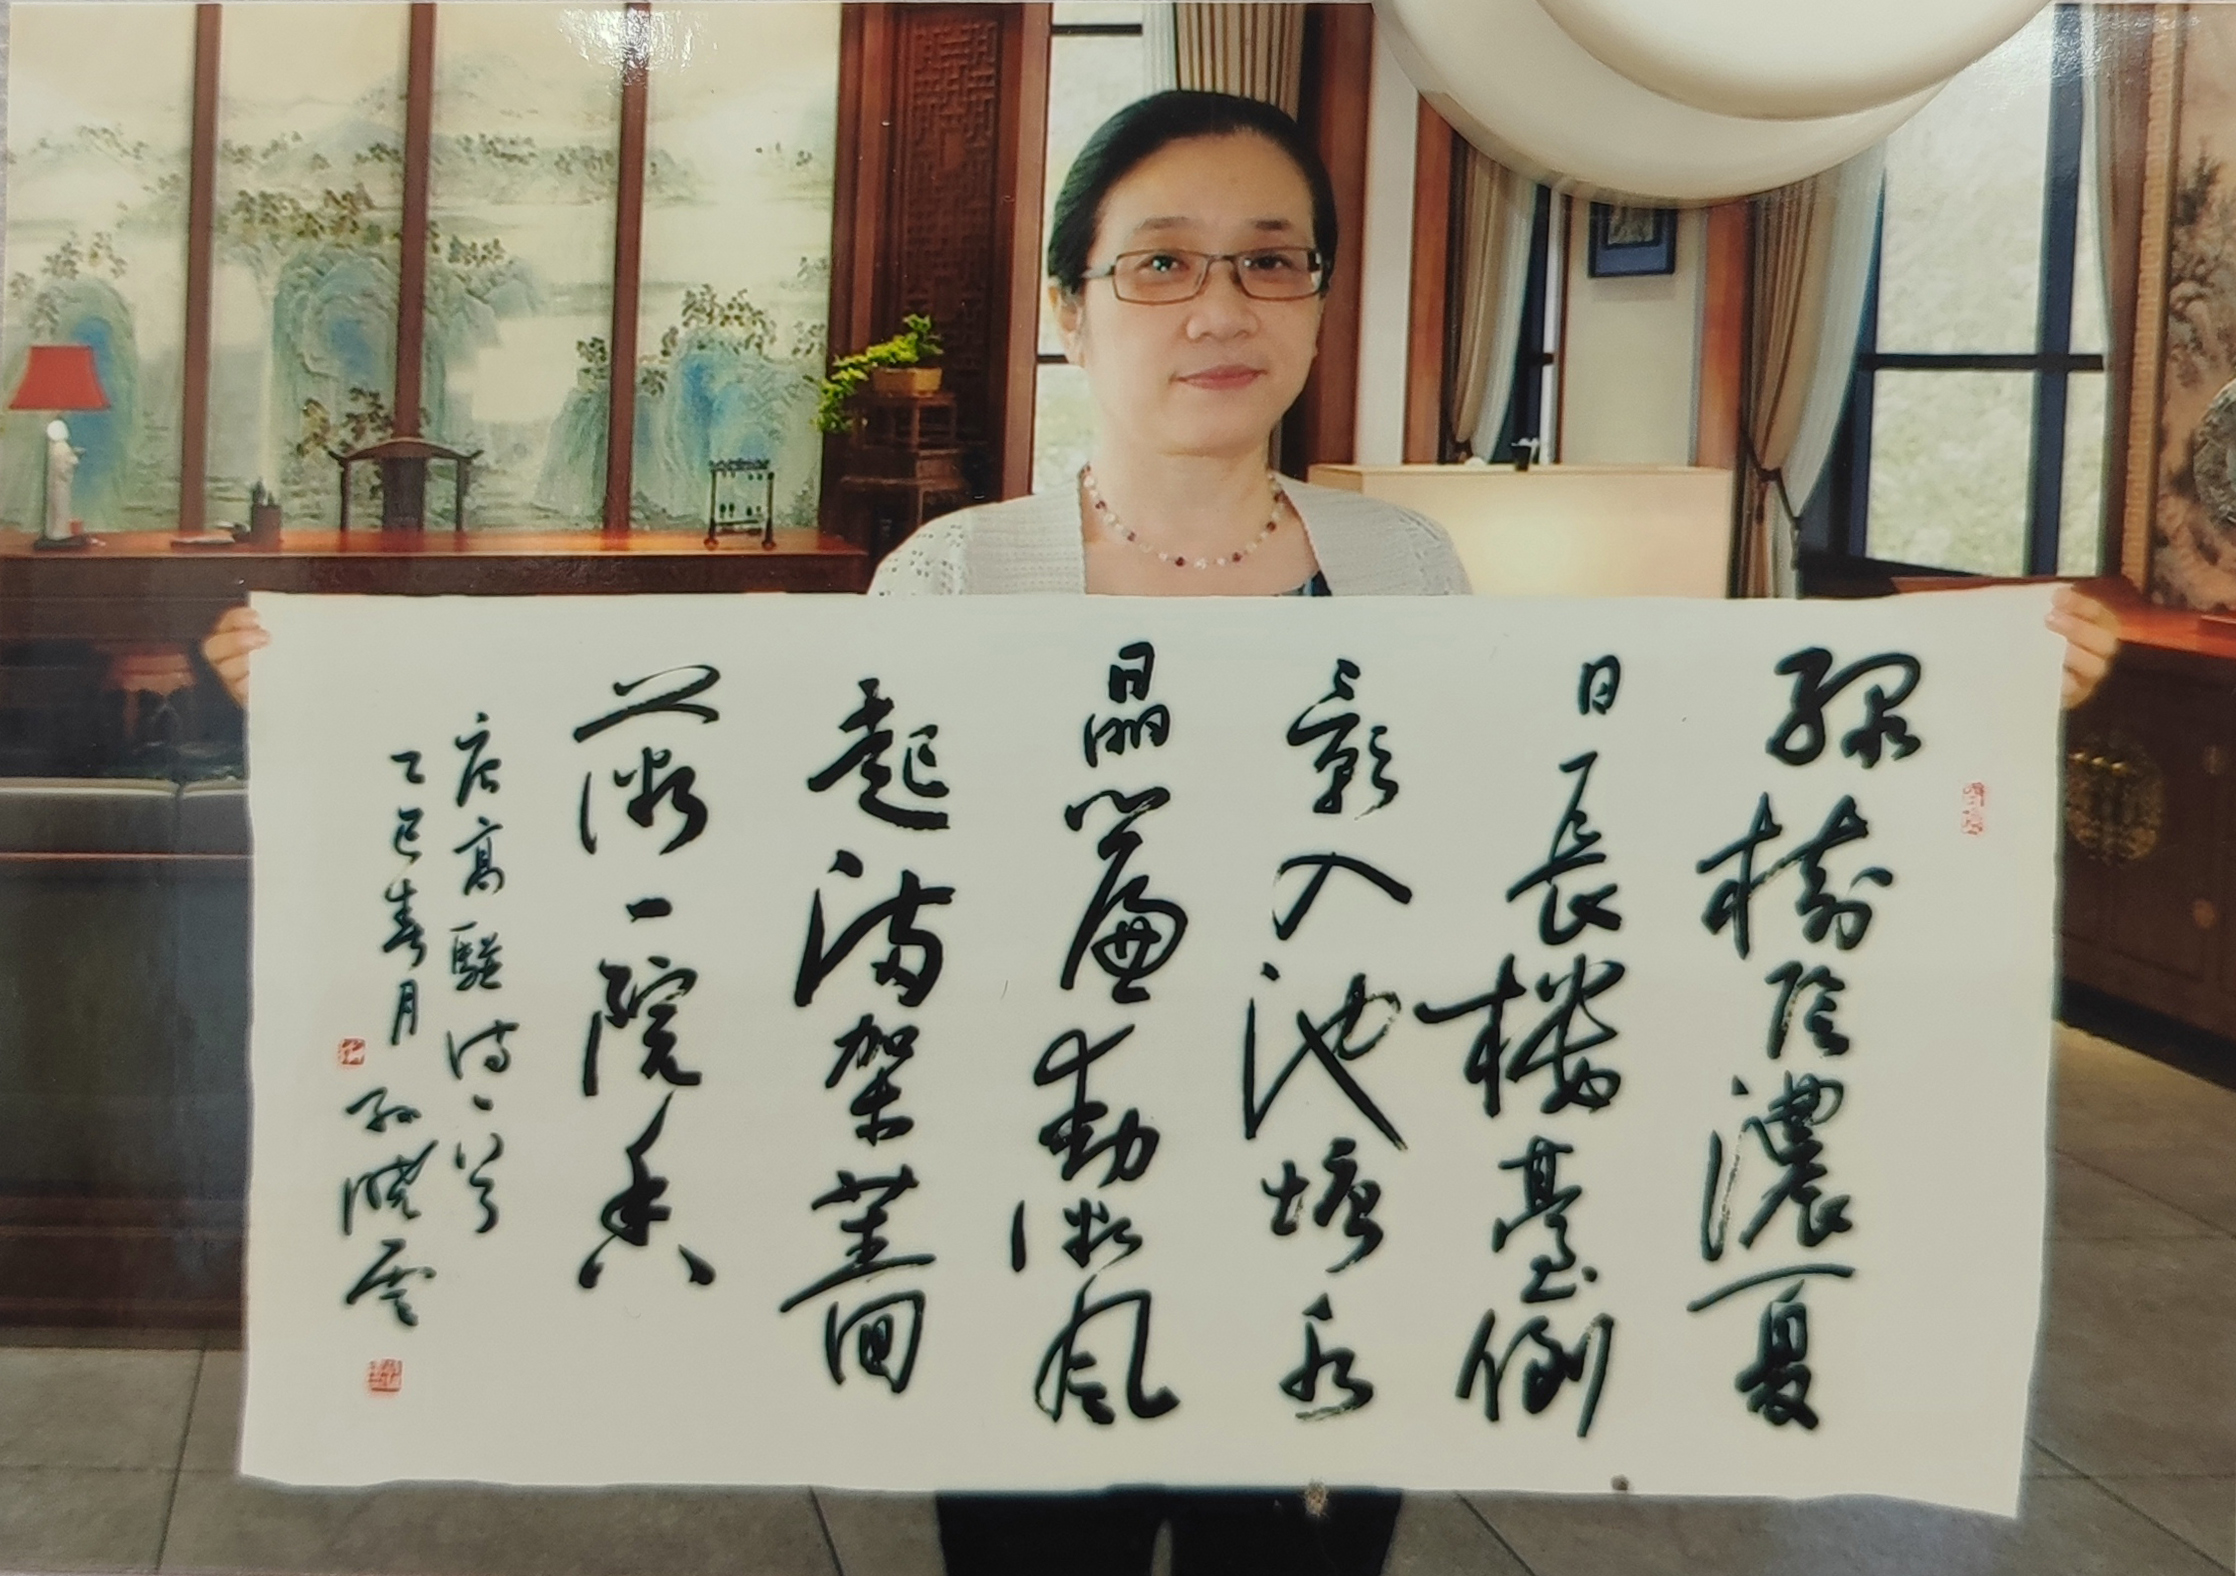 綠樹陰濃夏
日長樓臺倒
影入池塘水
晶簾動微風
起滿架薔
薇一院香
唐高駢詩一首
乙巳春月 孫曉雲